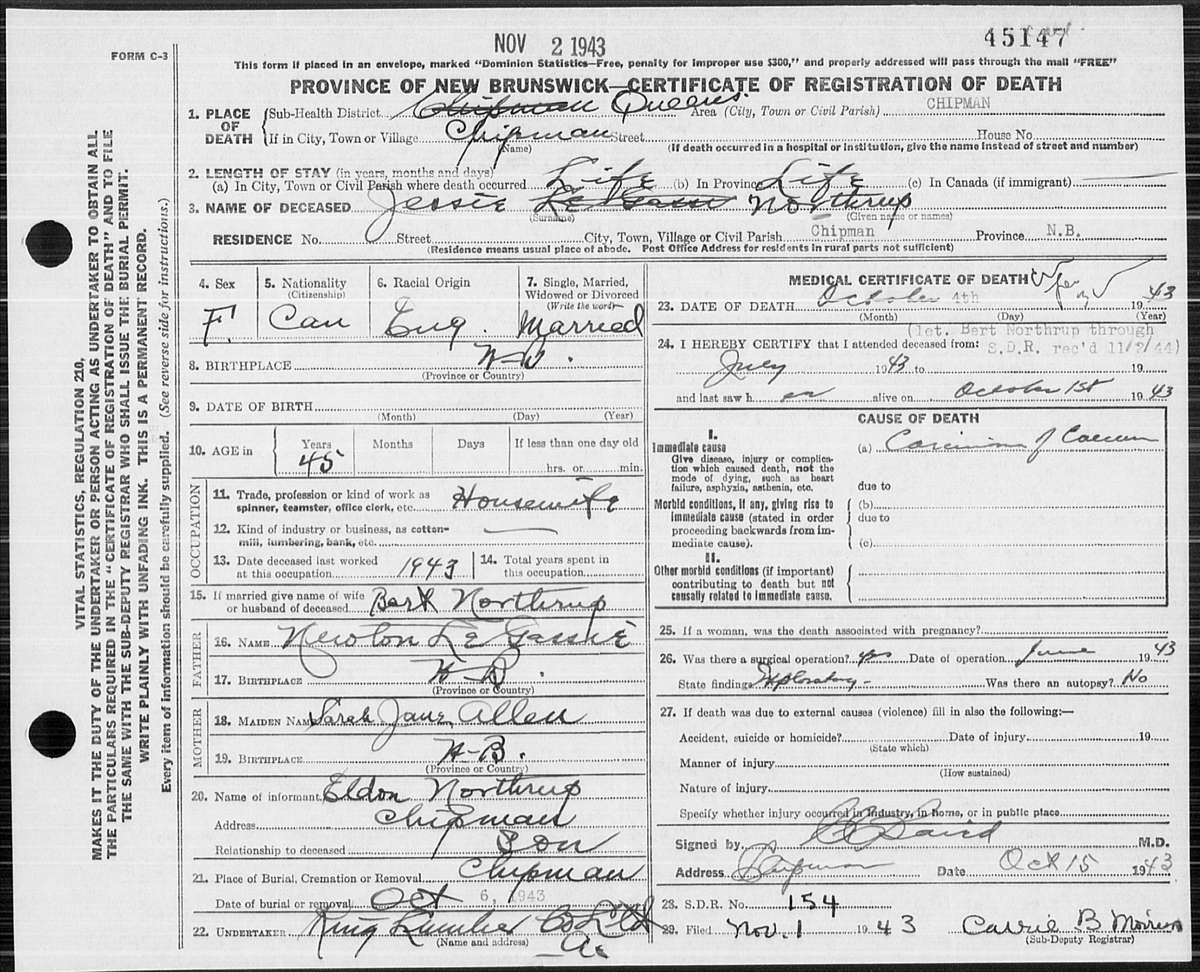 NOV 2 1943
45147
FORM C-3
This form if placed in an envelope, marked "Dominion Statistics—Free, penalty for improper use $300," and properly addressed will pass through the mail "FREE"
PROVINCE OF NEW BRUNSWICK—CERTIFICATE OF REGISTRATION OF DEATH
1. PLACE OF DEATH
Sub-Health District Chipman Queens. Area (City, Town or Civil Parish) CHIPMAN
If in City, Town or Village Chipman Street House No.
(Name) (If death occurred in a hospital or institution, give the name instead of street and number)
2. LENGTH OF STAY (in years, months and days)
(a) In City, Town or Civil Parish where death occurred Life (b) In Province Life (c) In Canada (if immigrant)
3. NAME OF DECEASED Jessie Le Gassie Northrup
(Surname) (Given name or names)
RESIDENCE No. Street City, Town, Village or Civil Parish Chipman Province N.B.
(Residence means usual place of abode. Post Office Address for residents in rural parts not sufficient)
VITAL STATISTICS, REGULATION 210,
MAKES IT THE DUTY OF THE UNDERTAKER OR PERSON ACTING AS UNDERTAKER TO OBTAIN ALL
THE PARTICULARS REQUIRED IN THE "CERTIFICATE OF REGISTRATION OF DEATH" AND TO FILE
THE SAME WITH THE SUB-DEPUTY REGISTRAR WHO SHALL ISSUE THE BURIAL PERMIT.
WRITE PLAINLY WITH UNFADING INK. THIS IS A PERMANENT RECORD.
Every item of information should be carefully supplied. (See reverse side for instructions.)
4. Sex
F.
5. Nationality
(Citizenship)
Can
6. Racial Origin
Eng.
7. Single, Married,
Widowed or Divorced
(Write the word)
Married
8. BIRTHPLACE N-B.
(Province or Country)
9. DATE OF BIRTH
(Month) (Day) (Year)
10. AGE in
Years Months Days If less than one day old
45 hrs. or min.
OCCUPATION
11. Trade, profession or kind of work as
spinner, teamster, office clerk, etc. Housewife
12. Kind of industry or business, as cotton-
mill, lumbering, bank, etc.
13. Date deceased last worked
at this occupation 1943
14. Total years spent in
this occupation
15. If married give name of wife
or husband of deceased Bert Northrup
FATHER
16. NAME Newton Le Gassie
17. BIRTHPLACE N-B.
(Province or Country)
MOTHER
18. MAIDEN NAME Sarah Jane Allen
19. BIRTHPLACE N-B.
(Province or Country)
20. Name of informant Eldon Northrup
Address Chipman
Relationship to deceased Son
21. Place of Burial, Cremation or Removal Chipman
Date of burial or removal Oct 6, 1943
22. UNDERTAKER King Lumber Co Ltd
(Name and address)
MEDICAL CERTIFICATE OF DEATH
23. DATE OF DEATH October 4th 1943
(Month) (Day) (Year)
(let. Bert Northrup through
S.D.R. rec'd 11/2/44)
24. I HEREBY CERTIFY that I attended deceased from:
July 1943 to 19
and last saw h er alive on October 1st 1943
CAUSE OF DEATH
I.
Immediate cause
Give disease, injury or complica-
tion which caused death, not the
mode of dying, such as heart
failure, asphyxia, asthenia, etc.
(a) Carcinoma of Caecum
due to
Morbid conditions, if any, giving rise to
immediate cause (stated in order
proceeding backwards from im-
mediate cause).
(b)
due to
(c)
II.
Other morbid conditions (if important)
contributing to death but not
causally related to immediate cause.
25. If a woman, was the death associated with pregnancy?
26. Was there a surgical operation? yes Date of operation June 1943
State findings Exploratory - Was there an autopsy? No
27. If death was due to external causes (violence) fill in also the following:—
Accident, suicide or homicide? Date of injury 19
(State which)
Manner of injury
(How sustained)
Nature of injury
Specify whether injury occurred in industry, in home, or in public place
Signed by M.D.
Address Chipman Date Oct 15 1943
28. S.D.R. No. 154
29. Filed Nov. 1 1943 Carrie B
(Sub-Deputy Registrar)